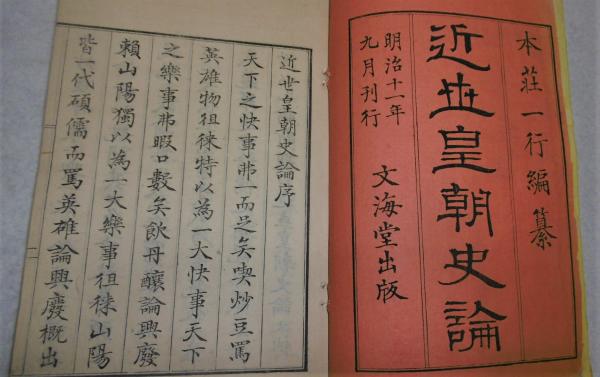 本莊一行編纂
近世皇朝史論
明治十一年
九月刊行
文海堂出版
近世皇朝史論序
天下之快事弗一而足矣喫炒豆罵
英雄物徂徠特以為一大快事天下
之樂事弗暇口數矣飲丹釀論興廢
賴山陽獨以為一大樂事徂徠山陽
皆一代碩儒而罵英雄論興廢概出